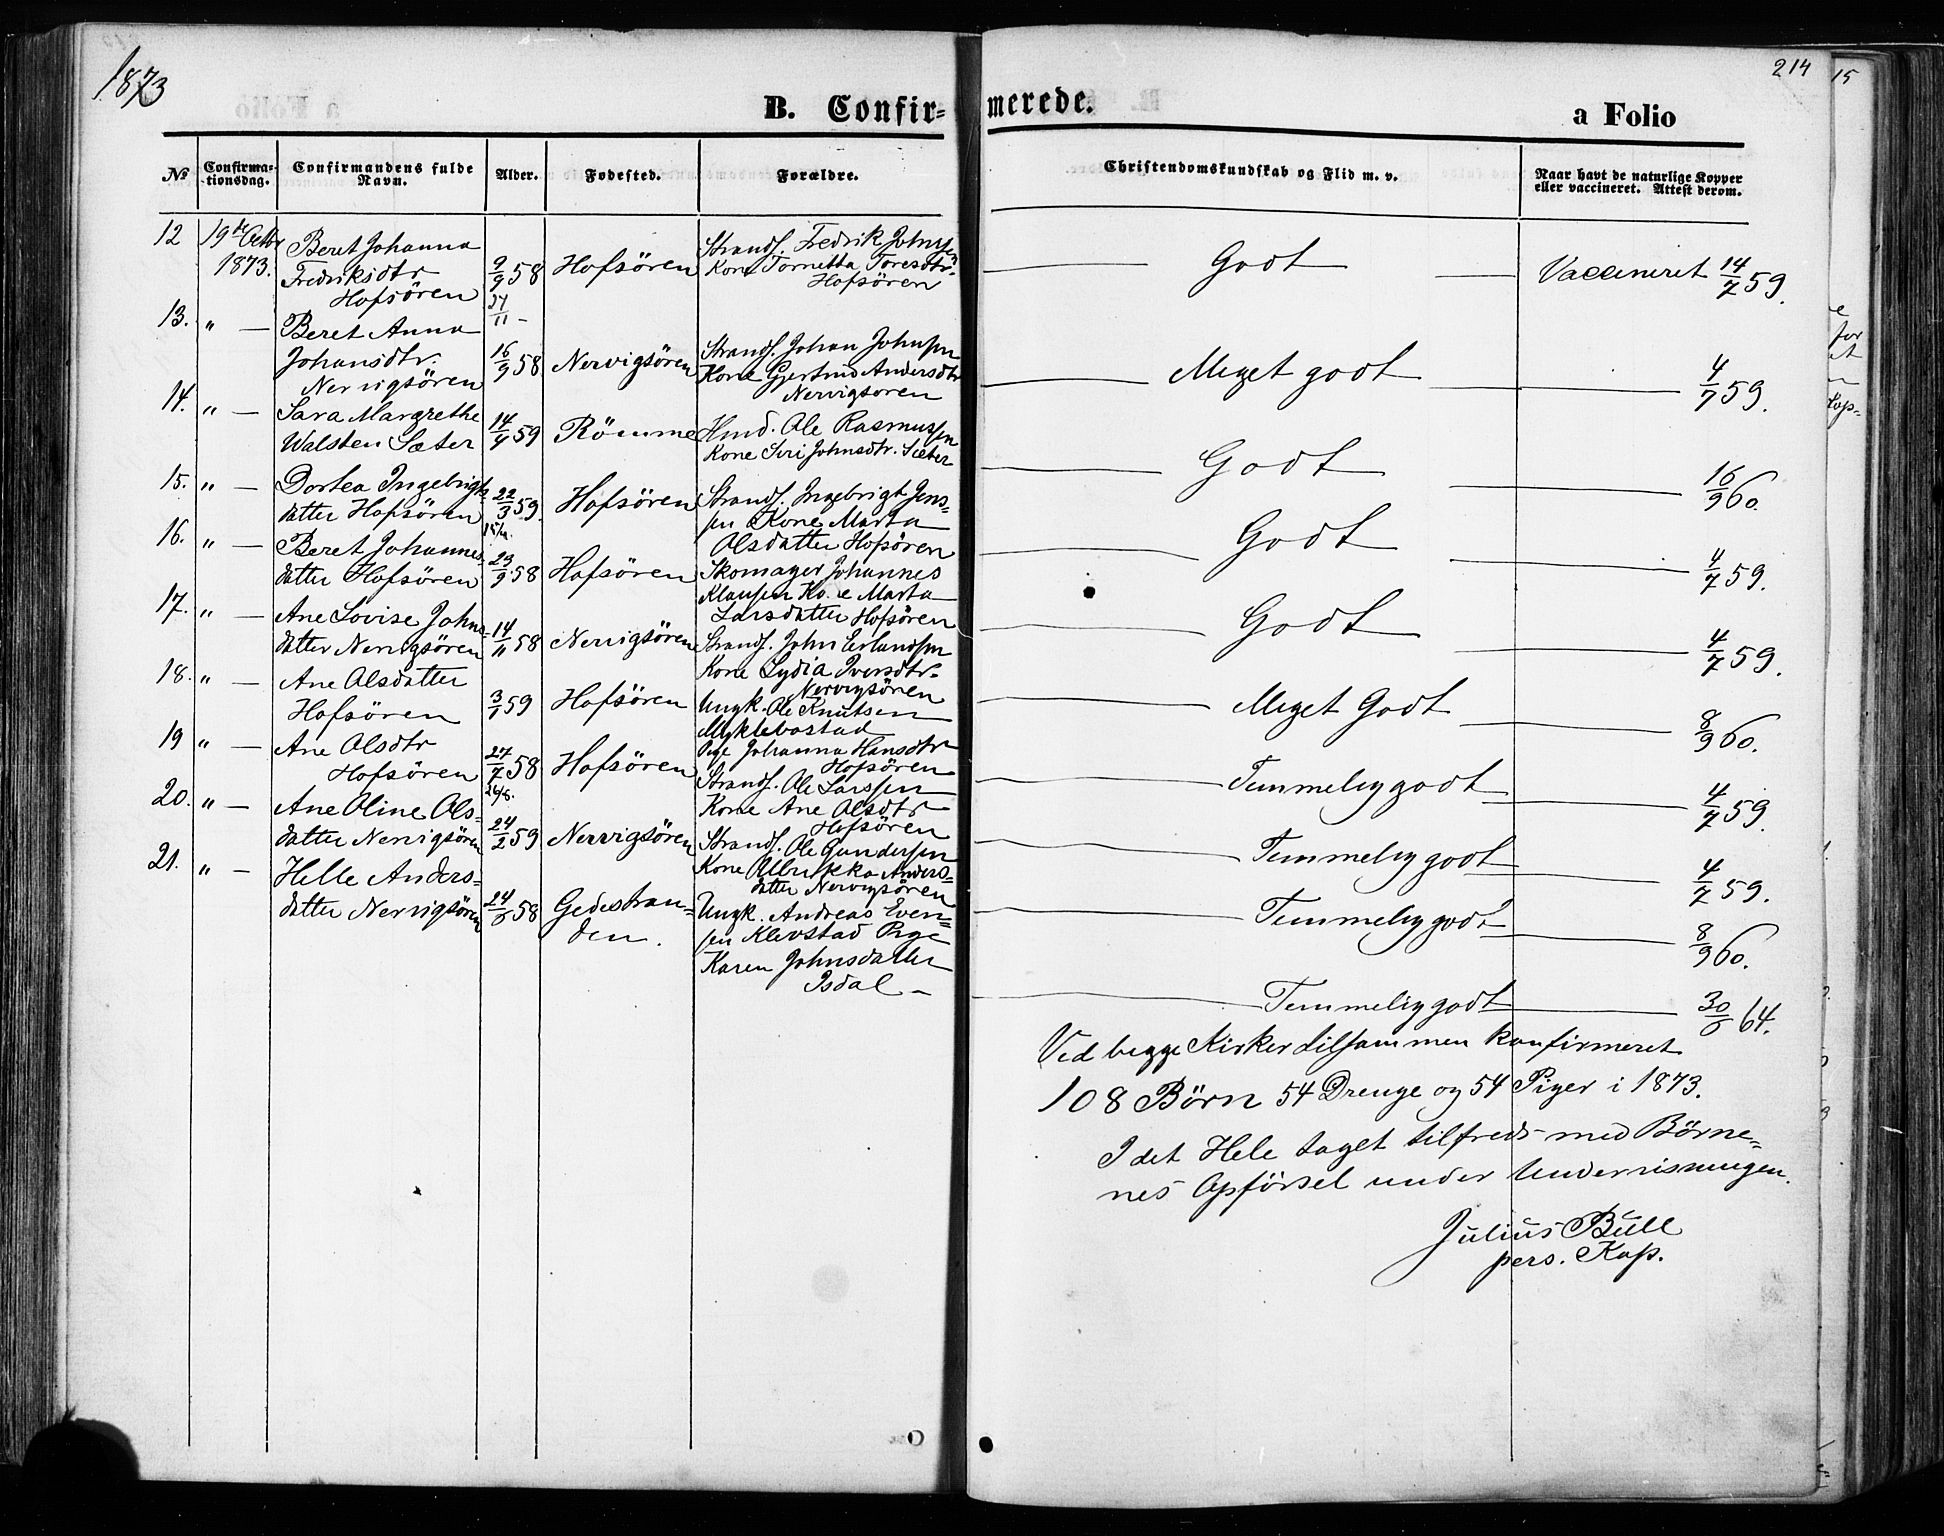 1873
B. Confir=
No
Confirma=
tionsdag.
Confirmandens fulde
Navn.
Alder.
Fødested.
Forældre.
12 19de Octbr
1873.
Beret Johanna
Fredriksdtr
Hofsören
9/9 58
27/11 -
Hofsören
Strands. Fredrik Johnsen
Kone Tornetta Toresdtr.
Hofsören
13. " — Beret Anna
Johansdtr.
Nervigsören
16/9 58
Nervigsören
Strands. Johan Johnsen
Kone Gjertrud Andersdtr
Nervigsoren
14. " — Sara Margrethe
Walsten Sæter
14/4 59
Römme
Hmd. Ole Rasmussen
Kone Siri Johnsdtr. Sæter
15. " — Dortea Ingebrigts
datter Hofsören
22/3 59.
Hofsören
Strands. Ingebrigt Jens=
sen Kone Marta
Olsdatter Hofsören
16. " — Beret Johannes
datter Hofsören
29/9 58
Hofsören
Skomager Johannes
Klausen Kone Marta
Larsdatter Hofsören
17. " — Ane Lovise Johns=
datter Nervigsören
14/11 58
Nervigsören
Strands. John Erlandsen
Kone Lydia Iversdtr.
Nervigsören
18. " — Ane Olsdatter
Hofsören
3/1 59
Hofsören
Ungk. Ole Knutsen
Myklebostad
Pige Johanna Hansdtr
Hofsören
19 " — Ane Olsdtr
Hofsören
27/7 58
26/8.
Hofsören
Strands. Ole Larssen
Kone Ane Olsdtr
Hofsören
20. " — Ane Oline Ols=
datter Nervigsören
24/2 59
Nervigsören
Strands. Ole Gundersen
Kone Ulrikka Anders=
datter Nervigsören
21. " — Helle Anders=
datter Nervigsören
24/6 58
Gedestran=
den.
Ungk. Andreas Even=
sen Klevstad Pige
Karen Johnsdatter
Isdal —
214
merede.
a Folio
Christendomskundskab og Flid m. v.
Naar havt de naturlige Kopper
eller vaccineret. Attest derom.
Godt — Vaccineret 14/7 59.
Meget godt — 4/7 59.
Godt — 16/9 60.
Godt — 4/7 59.
Godt — 4/7 59.
Meget Godt — 8/9 60.
Temmelig godt — 4/7 59.
Temmelig godt — 4/7 59.
Temmelig godt — 8/9 60.
Temmelig godt — 30/6 64.
Ved begge Kirker tilsammen konfirmeret
108 Börn 54 Drenge og 54 Piger i 1873.
I det Hele taget tilfreds med Börne=
nes Opförsel under Undervisningen.
Julius Bull
pers. Kap.
15